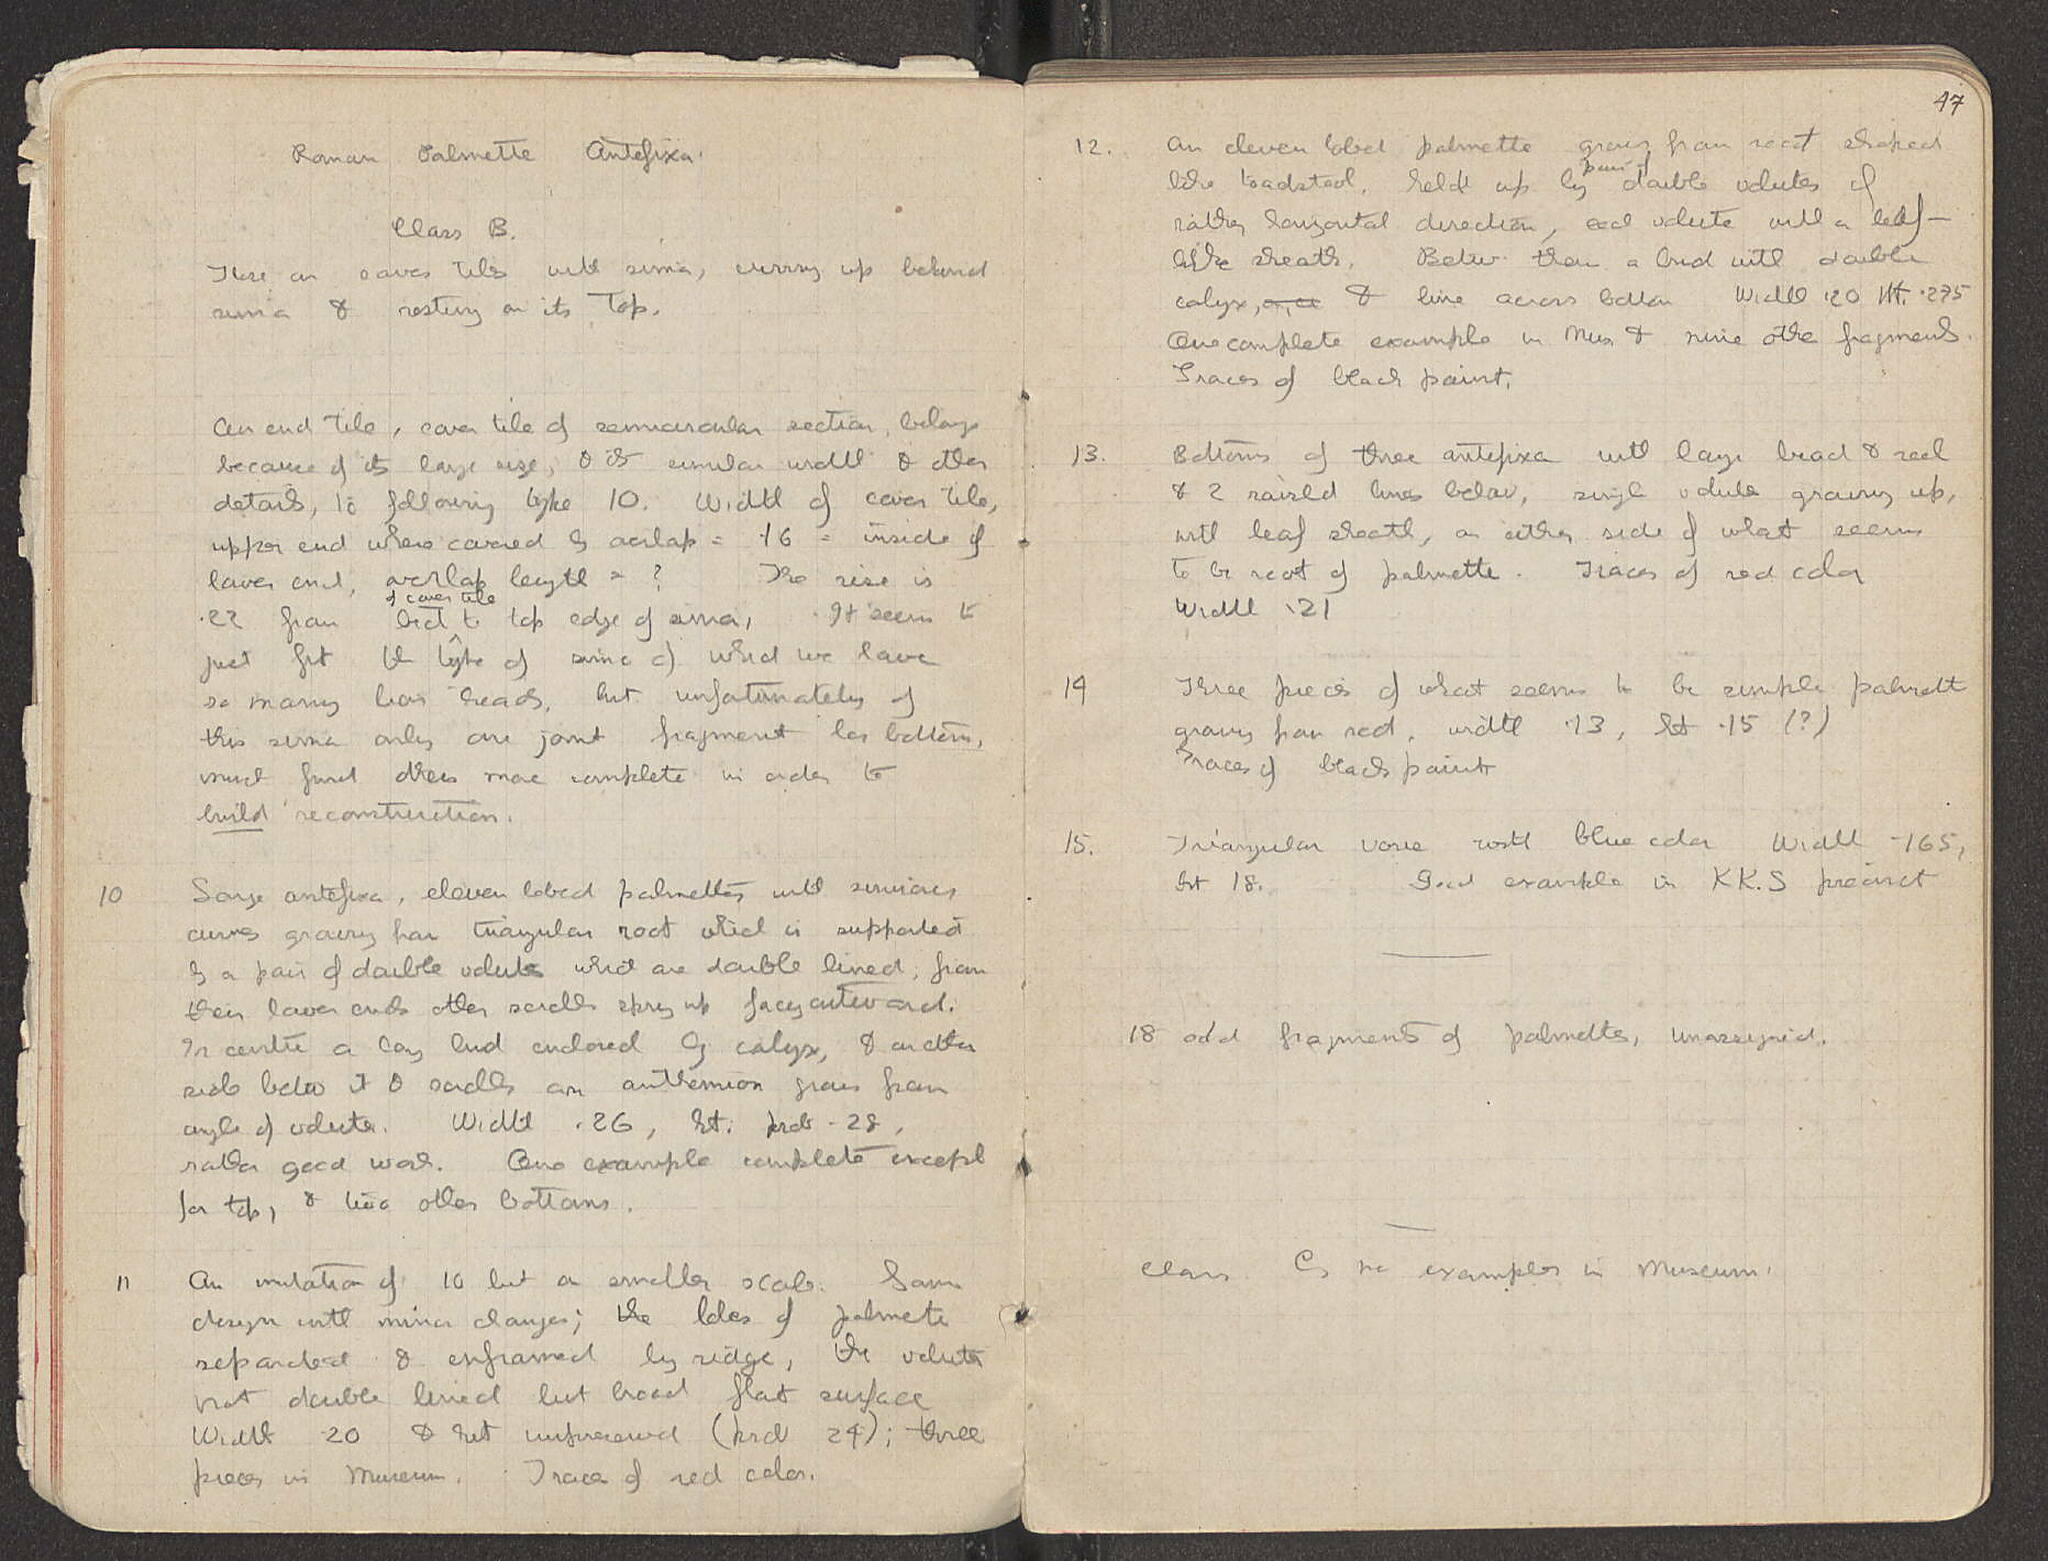 Roman Palmette Antefixa.
Class B.
These on eaves tiles with sima, curving up behind
sima & resting on its top.
An end tile, cover tile of semicircular section, belongs
because of its large size, & its similar width & other
details, to following type 10. Width of cover tile,
upper end where covered by overlap = .16 = inside of
lower end, overlap length = ? The rise is
of cover tile
.22 from bed to top edge of sima, It seems to
just fit the type of sima of which we have
so many lion heads, but unfortunately of
this sima only one joint fragment has bottom,
must find others more complete in order to
build reconstruction.
10 Large antefixa, eleven lobed palmettes with sinuous
curves growing from triangular root which is supported
by a pair of double volutes which are double lined, from
their lower ends other scrolls spring up facing outward.
In centre a long bud enclosed by calyx, & on other
side betw it & scrolls an anthemion grows from
angle of volutes. Width .26, ht. prob .28,
rather good work. One example complete except
for top, & two other bottoms.
11 An imitation of 10 but on smaller scale. Same
design with minor changes; the lobes of palmette
separated & enframed by ridge, the volutes
not double lined but broad flat surface
Width .20 & ht unpreserved (prob 24); three
pieces in Museum. Traces of red color.
47
12. An eleven lobed palmette grows from root shaped
pair of
like toadstool, held up by double volutes of
rather horizontal direction, each volute with a leaf-
like sheath. Betw. them a bud with double
calyx, & line across bottom Width .20 Ht. .275
One complete example in Mus & nine other fragments.
Traces of black paint.
13. Bottoms of three antefixa with large bead & reel
& 2 raised lines below, single volutes growing up,
with leaf sheath, on either side of what seems
to be root of palmette. Traces of red color
Width .21
14 Three pieces of what seems to be simple palmette
growing from root, width .13, ht .15 (?)
Traces of black paint
15. Triangular with blue color Width .165,
ht 18. Good example in KK.S precinct
18 odd fragments of palmettes, unassigned.
Class C, no examples in Museum.